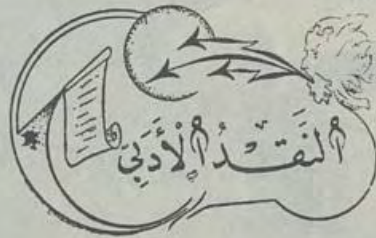 النَّقْدُ الْأَدَبِيّ